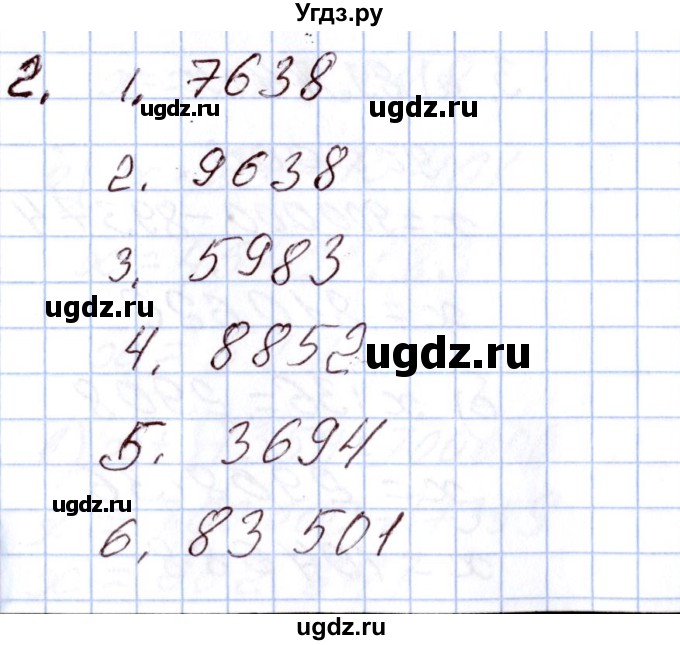 Угдз.ру
2. 1. 7638
ugdz.ru ugdz.ru
2. 9638
3. 5983
ugdz.ru
4. 8852 ugdz.ru
5. 3694
ugdz.ru
6. 83 501
ugdz.ru